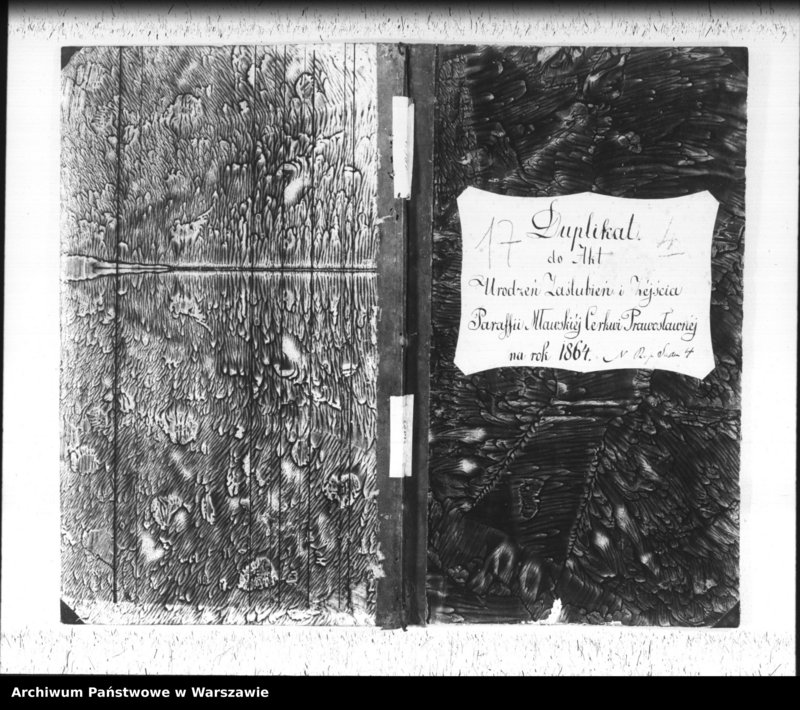 17 Duplikat. 4
do Akt
Urodzeń Zaślubień i Zejścia
Paraffii Mławskiéj Cerkwi Prawosławnéj
na rok 1864. N 4
Archiwum Państwowe w Warszawie